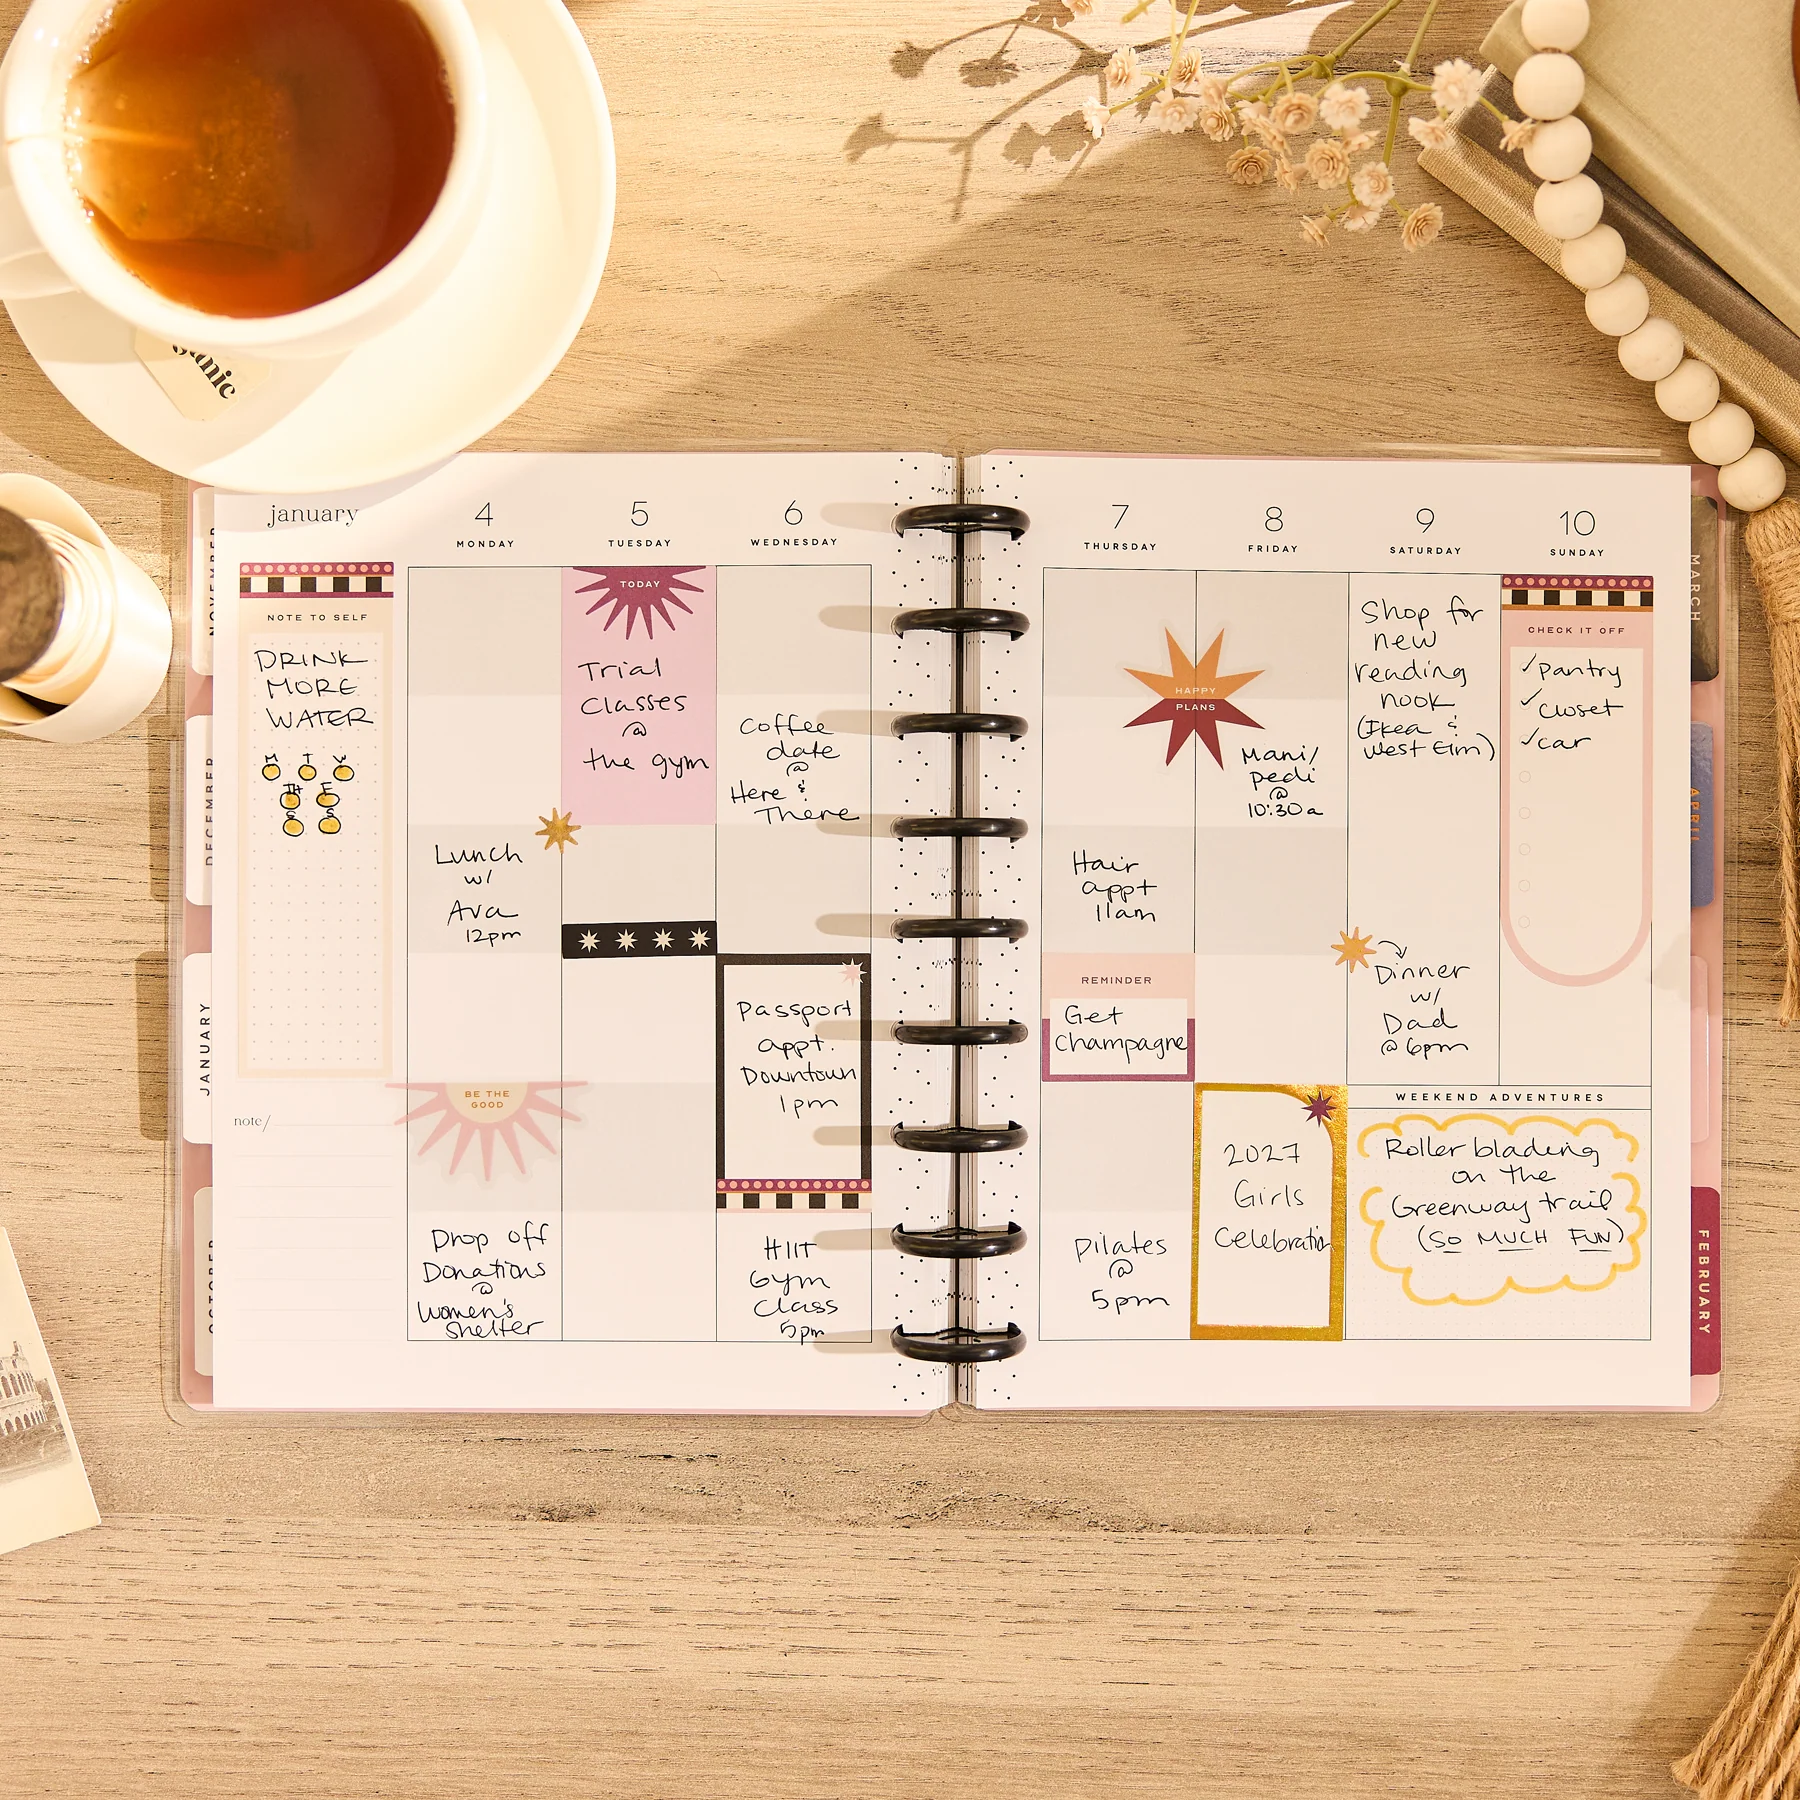 anic
NOVEMBER
DECEMBER
JANUARY
OCTOBER
january
NOTE TO SELF
DRINK
MORE
WATER
M T W
TH F
S S
note/
4
MONDAY
Lunch
w/
Ava
12pm
BE THE
GOOD
Drop off
Donations
@
Women's
Shelter
5
TUESDAY
TODAY
Trial
Classes
@
the gym
6
WEDNESDAY
Coffee
date
@
Here &
There
Passport
appt.
Downtown
1pm
HIIT
Gym
Class
5pm
7
THURSDAY
HAPPY
PLANS
Hair
appt
11am
REMINDER
Get
Champagne
Pilates
@
5pm
8
FRIDAY
Mani/
pedi
@
10:30a
2027
Girls
Celebration
9
SATURDAY
Shop for
new
reading
nook
(Ikea &
West Elm)
Dinner
w/
Dad
@ 6pm
10
SUNDAY
CHECK IT OFF
✓pantry
✓closet
✓car
WEEKEND ADVENTURES
Roller blading
on the
Greenway trail
(SO MUCH FUN)
MARCH
APRIL
FEBRUARY